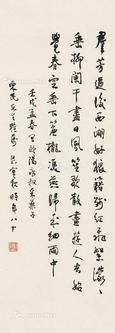 群芳過後西湖好狼籍殘紅飛絮濛濛
垂柳闌干盡日風笙歌散盡遊人去始
覺春空垂下簾櫳雙燕歸來細雨中
壬戌孟春書歐陽永叔采桑子
時年八十